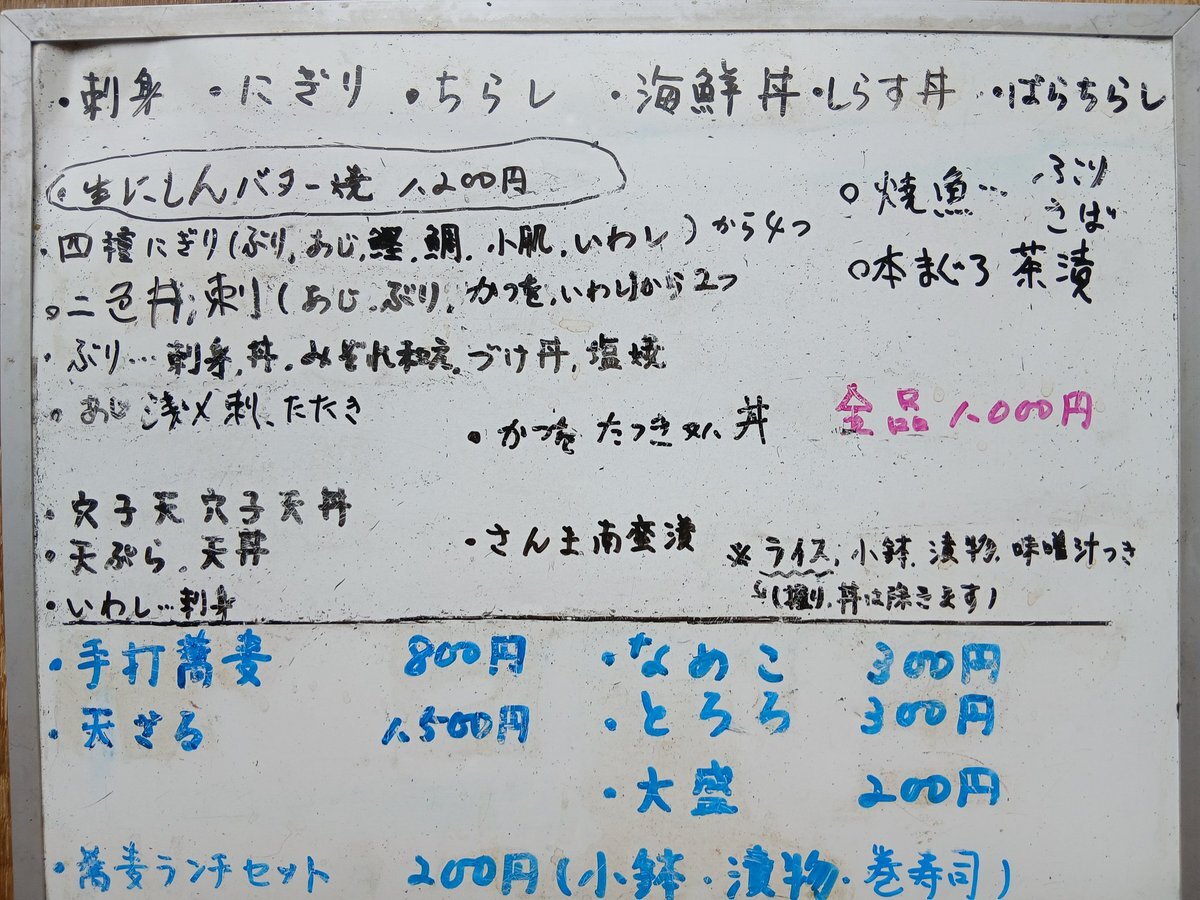 ・刺身 ・にぎり ・ちらし ・海鮮丼・しらす丼 ・ばらちらし
・生にしんバター焼 1,200円
・四種にぎり(ぶり,あじ,鰹,鯛,小肌,いわし)から4つ
・二色丼,刺(あじ,ぶり,かつを,いわし)から2つ
・ぶり…刺身,丼,みぞれ和え,づけ丼,塩焼
・あじ 浅〆刺,たたき
・かつを たつきorX 丼
・穴子天 穴子天丼
・天ぷら、天丼
・いわし…刺身
・さんま南蛮漬
○焼魚… ぶり
さば
○本まぐろ茶漬
全品1,000円
※ライス,小鉢,漬物,味噌汁つき
(握り,丼は除きます)
・手打蕎麦 800円
・天ざる 1,500円
・なめこ 300円
・とろろ 300円
・大盛 200円
・蕎麦ランチセット 200円(小鉢・漬物・巻寿司)